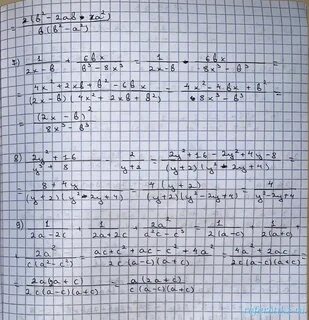 = 2(b² - 2ab + 2a²) / b(b² - a²)
7) 1/(2x-b) + 6bx/(b³-8x³) = 1/(2x-b) - 6bx/(8x³-b³) =
= (4x² + 2xb + b² - 6bx)/((2x-b)(4x² + 2xb + b²)) = (4x² - 4bx + b²)/(8x³ - b³) =
= (2x - b)²/(8x³ - b³)
8) (2y² + 16)/(y³ + 8) - 2/(y+2) = (2y² + 16 - 2y² + 4y - 8)/((y+2)(y² - 2y + 4)) =
= (8 + 4y)/((y+2)(y² - 2y + 4)) = 4(y+2)/((y+2)(y² - 2y + 4)) = 4/(y² - 2y + 4)
9) 1/(2a-2c) + 1/(2a+2c) + 2a²/(a²c-c³) = 1/(2(a-c)) + 1/(2(a+c)) +
+ 2a²/(c(a²-c²)) = (ac + c² + ac - c² + 4a²)/(2c(a-c)(a+c)) = (4a² + 2ac)/(2c(a-c)(a+c)) =
= 2a(2a + c)/(2c(a-c)(a+c)) = a(2a + c)/(c(a-c)(a+c))